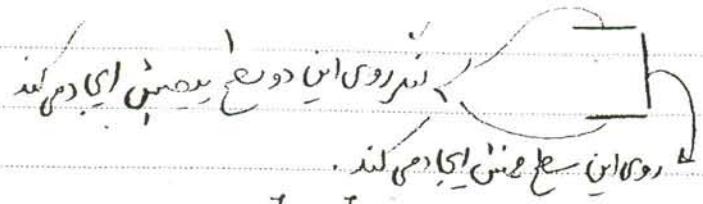 لنگر روی این دو سطح پیچش ایجاد می کند
روی این سطح خمش ایجاد می کند.